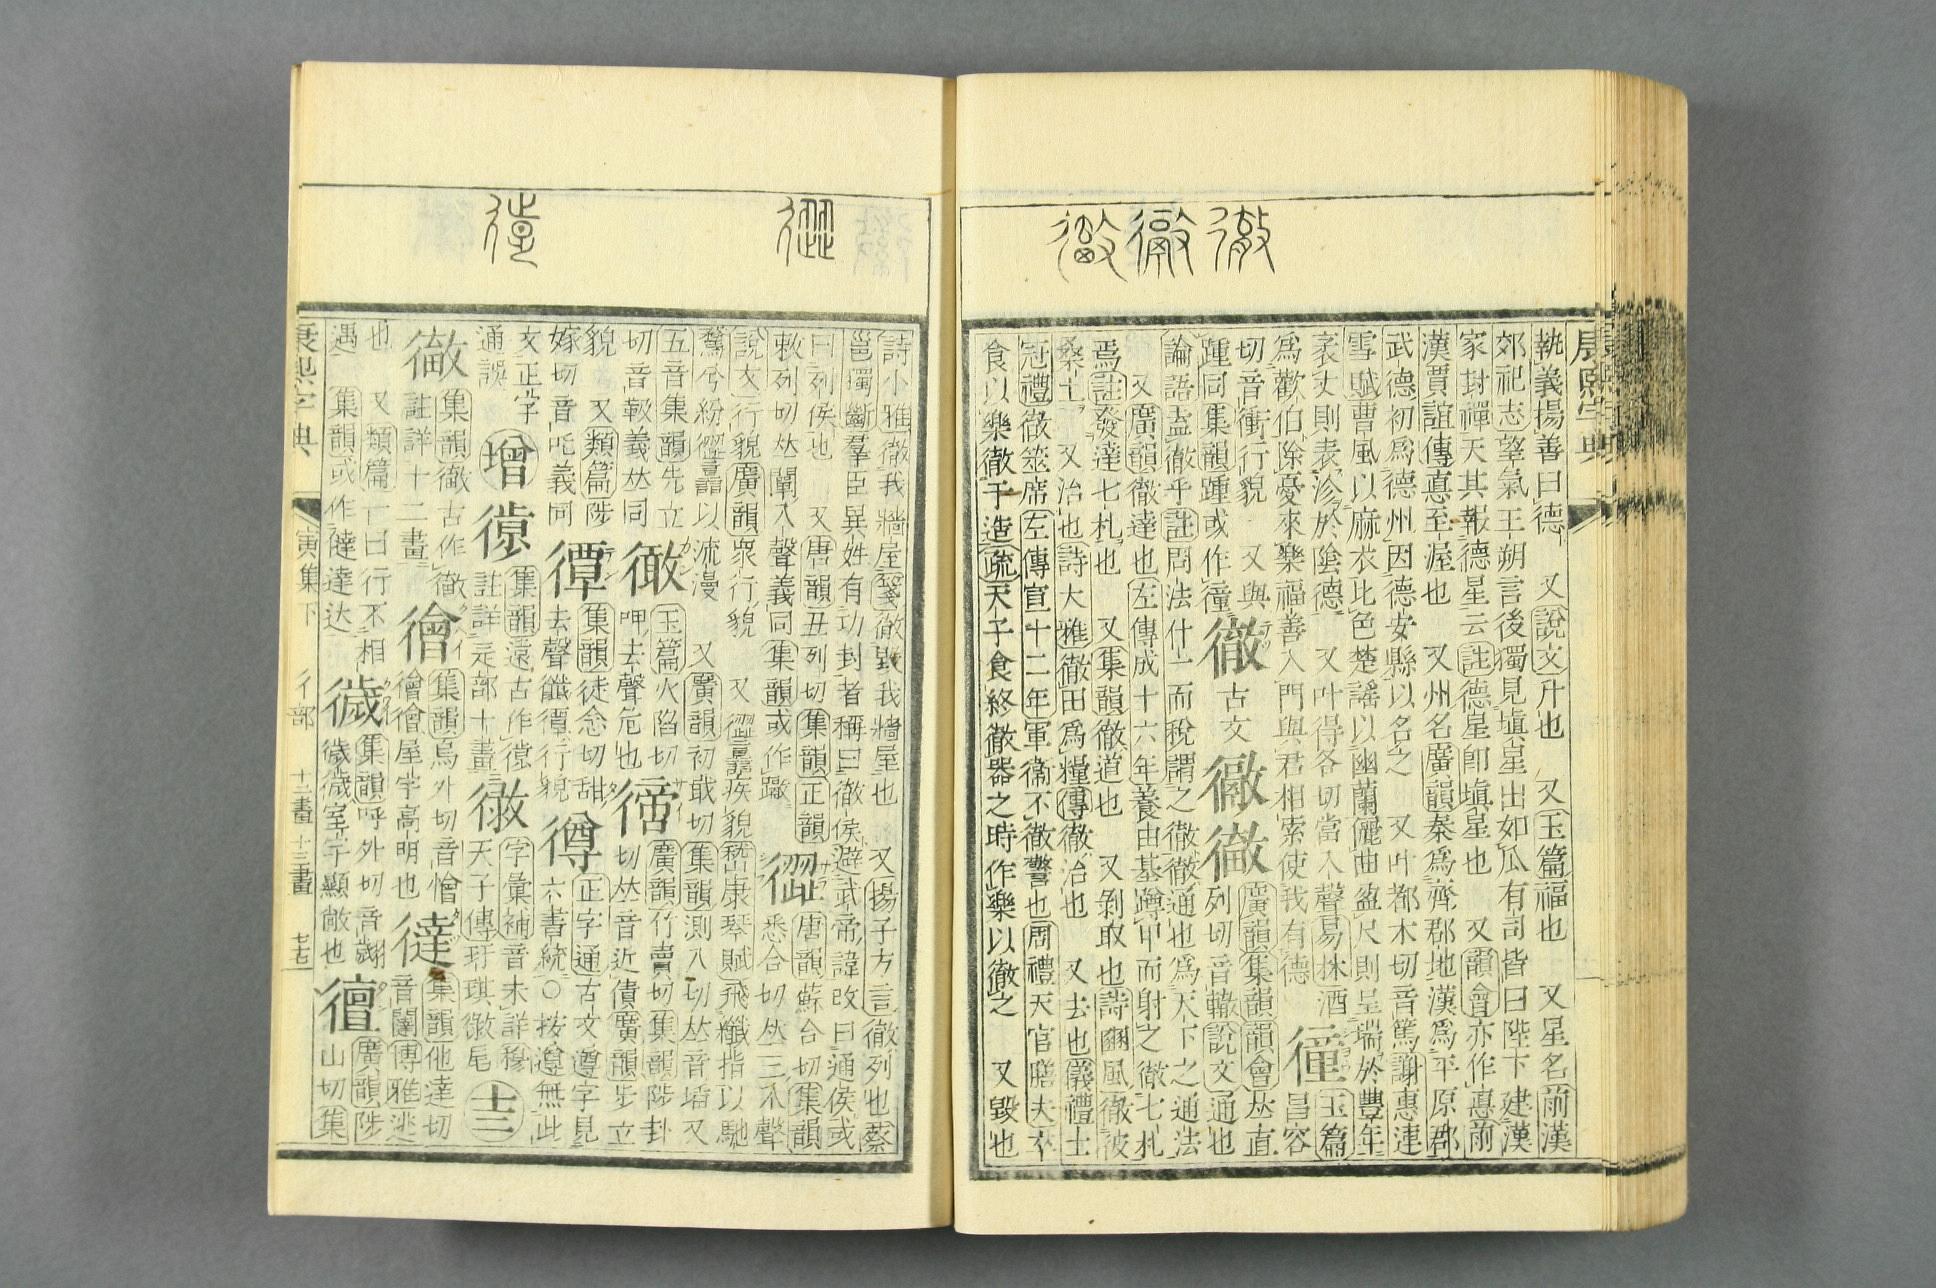 康熙字典
執義揚善曰德 又說文升也 又玉篇福也 又星名前漢
郊祀志望氣王朔言後獨見塡星出如瓜有司皆曰陛下建漢
家封禪天其報德星云註德星卽塡星也 又韻會亦作悳前
漢賈誼傳悳至渥也 又州名廣韻秦爲齊郡地漢爲平原郡
武德初爲德州因德安縣以名之 又叶都木切音篤謝惠連
雪賦曹風以麻衣比色楚謠以幽蘭儷曲盈尺則呈瑞於豐年
袤丈則表沴於陰德 又叶得各切當入聲易林酒
爲歡伯除憂來樂福善入門與君相索使我有德
㣫 玉篇昌容
切音衝行貌 又與
踵同集韻踵或作㣫
徹 古文
廣韻集韻韻會𠀤直
列切音轍說文通也
論語盍徹乎註周法什一而稅謂之徹徹通也爲天下之通法
又廣韻徹達也左傳成十六年養由基蹲甲而射之徹七札
焉註發達七札也 又集韻徹道也 又剝取也詩豳風徹彼
桑土 又治也詩大雅徹田爲糧傳徹治也 又去也儀禮士
冠禮徹筮席左傳宣十二年軍衞不徹警也周禮天官膳夫卒
食以樂徹于造疏天子食終徹器之時作樂以徹之 又毀也
詩小雅徹我牆屋箋徹毀我牆屋也 又揚子方言徹列也蔡
邕獨斷羣臣異姓有功封者稱曰徹侯避武帝諱改曰通侯或
曰列侯也 又唐韻丑列切集韻正韻
敕列切𠀤闡入聲義同集韻或作
㣮 唐韻蘇合切集韻
悉合切𠀤三入聲
說文行貌廣韻衆行貌 又㣮譶疾貌嵇康琴賦飛纖指以馳
騖兮紛㣮譶以流漫 又廣韻初戢切集韻測入切𠀤音 又
五音集韻先立
切音靸義𠀤同
玉篇火陷切
呷去聲危也
廣韻竹賣切集韻陟卦
切𠀤音近債廣韻步立
貌 又類篇陟
嫁切音吒義同
集韻徒念切甜
去聲 行貌
正字通古文遵字見
六書統〇按遵無此
文正字
通誤
增
集韻遠古作
註詳辵部十畫
字彙補音未詳穆
天子傳 琪 尾
十三
集韻徹古作
註詳十二畫
集韻烏外切音懀
屋宇高明也
集韻他達切
音闥博雅逃
也 又類篇一曰行不相
遇 集韻或作 達达
集韻呼外切音翽
室宇顯敞也
廣韻陟
山切集
康熙字典 寅集下 彳部 十二畫 十三畫